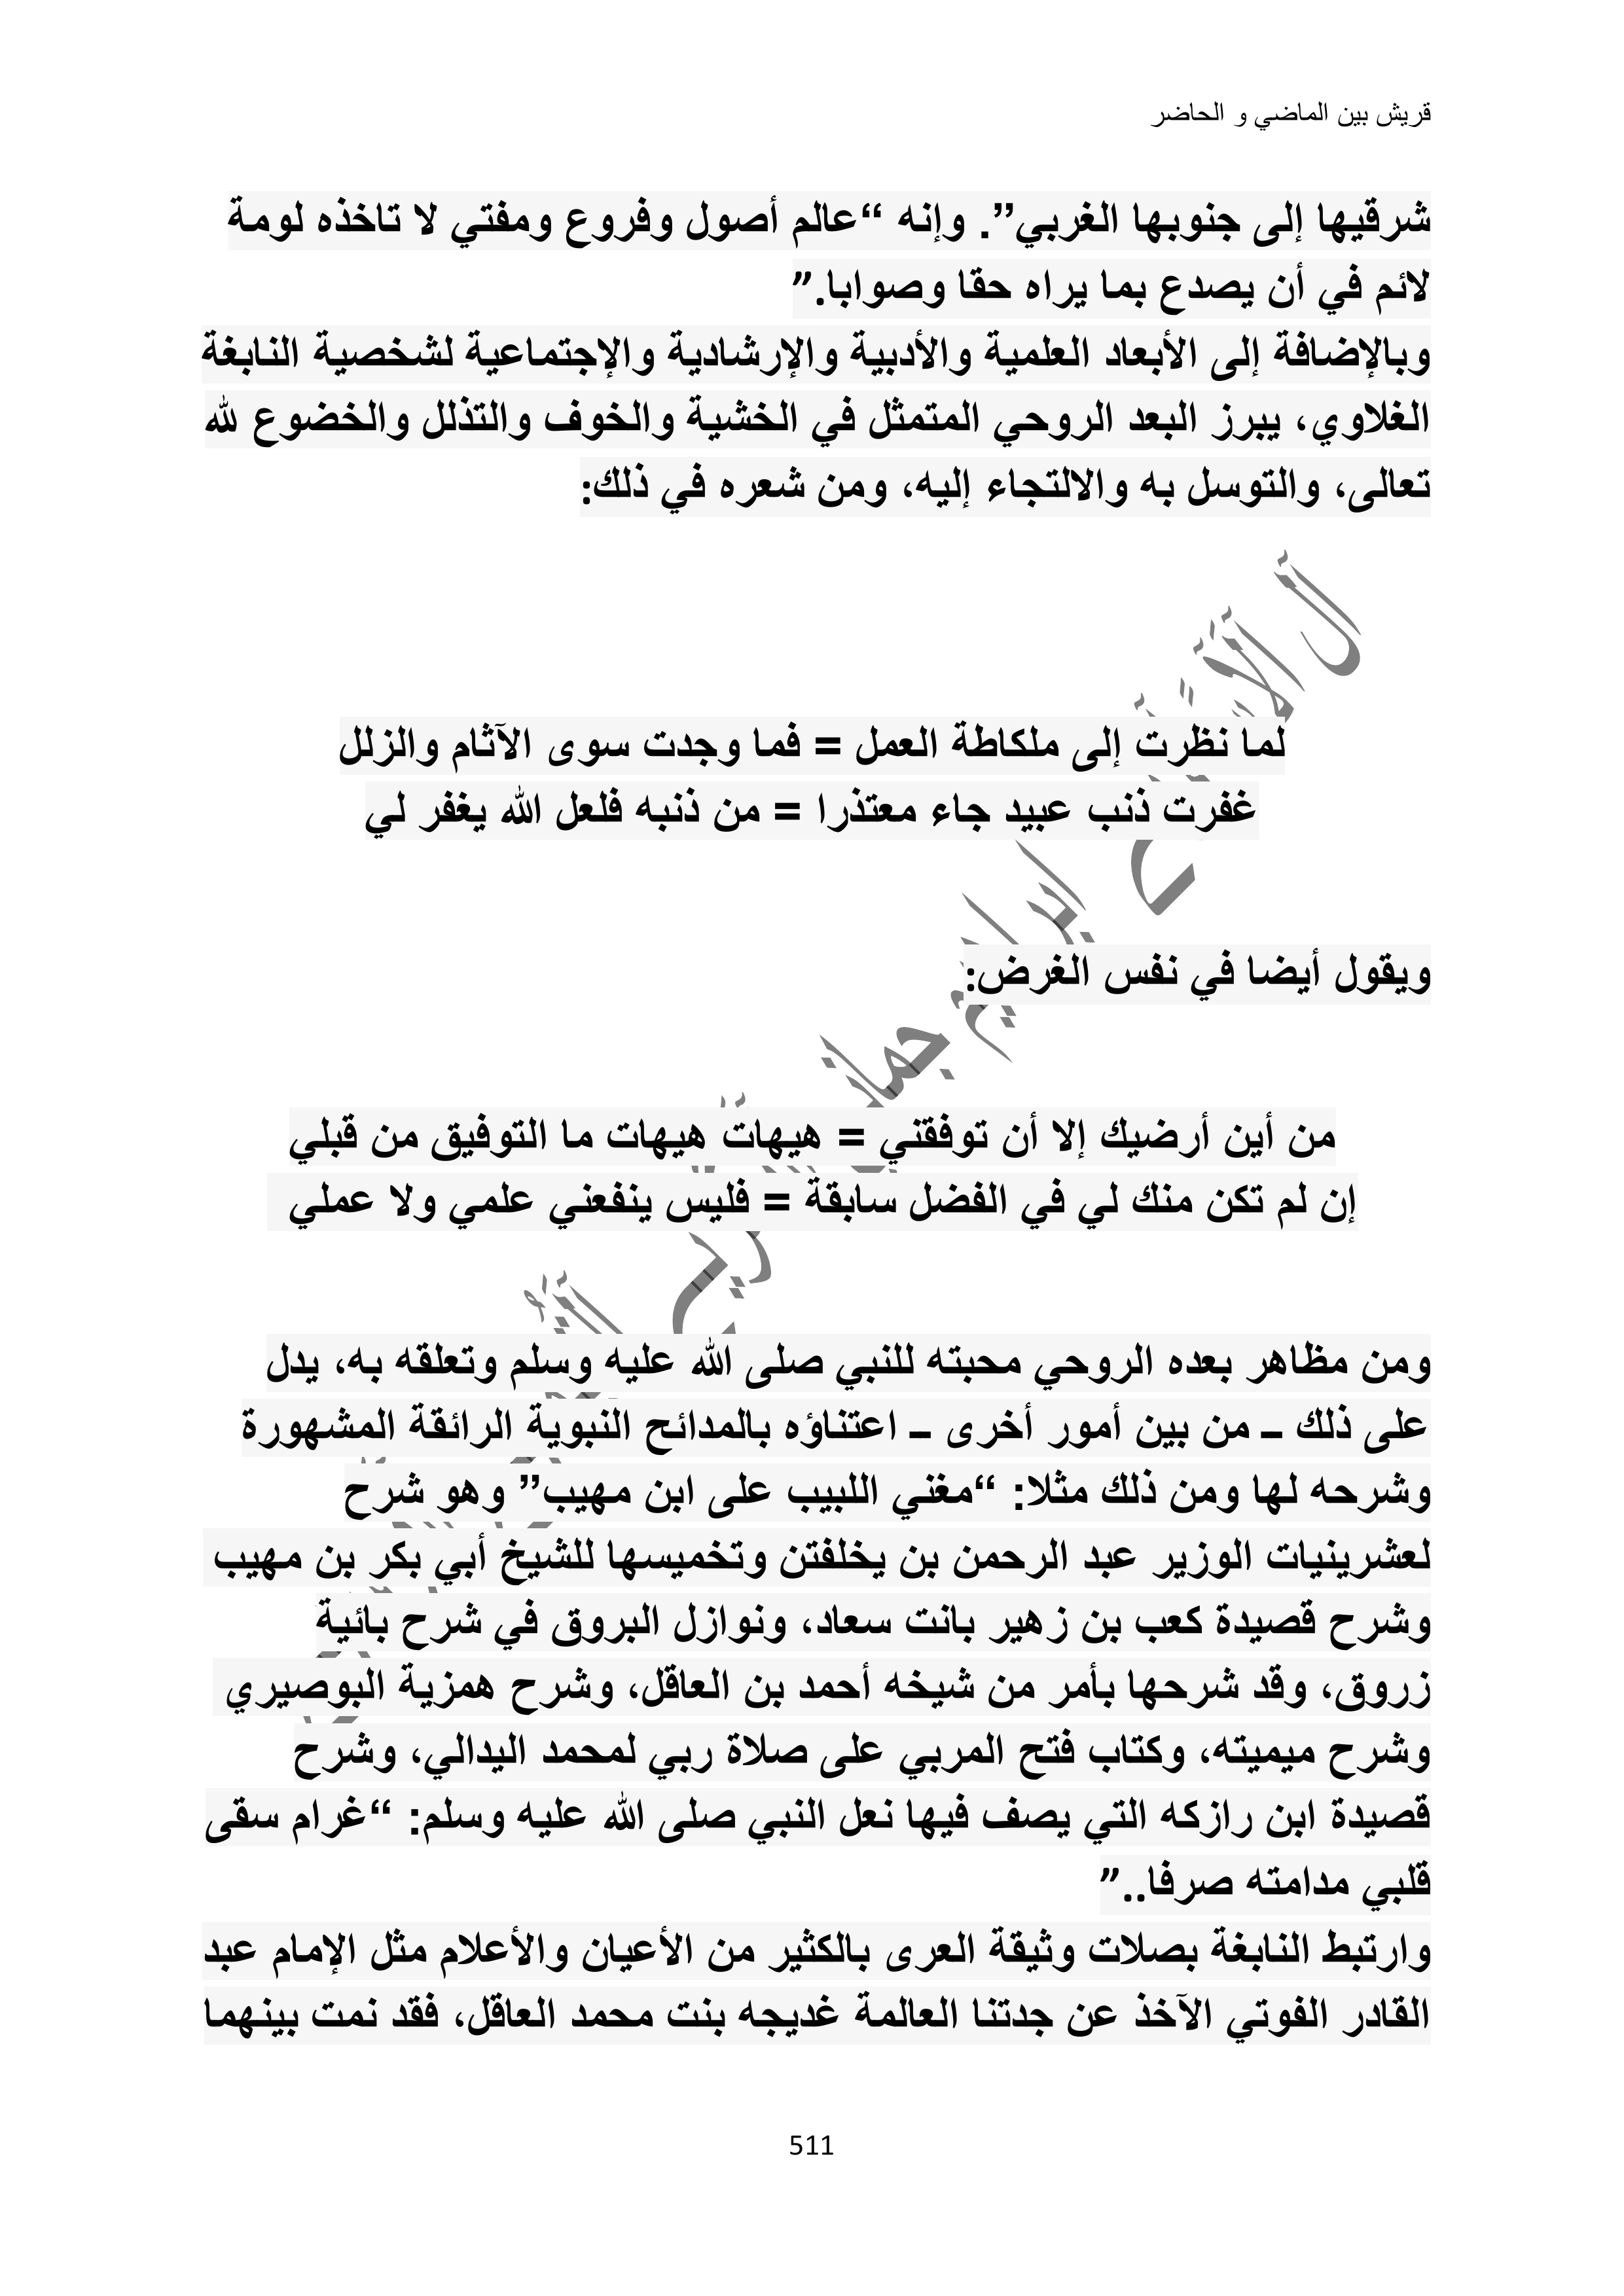 قريش بين الماضي و الحاضر
شرقيها إلى جنوبها الغربي”. وإنه “عالم أصول وفروع ومفتي لا تاخذه لومة
لائم في أن يصدع بما يراه حقا وصوابا.”
وبالإضافة إلى الأبعاد العلمية والأدبية والإرشادية والإجتماعية لشخصية النابغة
الغلاوي، يبرز البعد الروحي المتمثل في الخشية والخوف والتذلل والخضوع لله
تعالى، والتوسل به والالتجاء إليه، ومن شعره في ذلك:
لما نظرت إلى ملكاطة العمل = فما وجدت سوى الآثام والزلل
غفرت ذنب عبيد جاء معتذرا = من ذنبه فلعل الله يغفر لي
ويقول أيضا في نفس الغرض:
من أين أرضيك إلا أن توفقني = هيهات هيهات ما التوفيق من قبلي
إن لم تكن منك لي في الفضل سابقة = فليس ينفعني علمي ولا عملي
ومن مظاهر بعده الروحي محبته للنبي صلى الله عليه وسلم وتعلقه به، يدل
على ذلك ــ من بين أمور أخرى ــ اعتناؤه بالمدائح النبوية الرائقة المشهورة
وشرحه لها ومن ذلك مثلا: “مغني اللبيب على ابن مهيب” وهو شرح
لعشرينيات الوزير عبد الرحمن بن يخلفتن وتخميسها للشيخ أبي بكر بن مهيب
وشرح قصيدة كعب بن زهير بانت سعاد، ونوازل البروق في شرح بائية
زروق، وقد شرحها بأمر من شيخه أحمد بن العاقل، وشرح همزية البوصيري
وشرح ميميته، وكتاب فتح المربي على صلاة ربي لمحمد اليدالي، وشرح
قصيدة ابن رازكه التي يصف فيها نعل النبي صلى الله عليه وسلم: “غرام سقى
قلبي مدامته صرفا..”
وارتبط النابغة بصلات وثيقة العرى بالكثير من الأعيان والأعلام مثل الإمام عبد
القادر الفوتي الآخذ عن جدتنا العالمة غديجه بنت محمد العاقل، فقد نمت بينهما
511